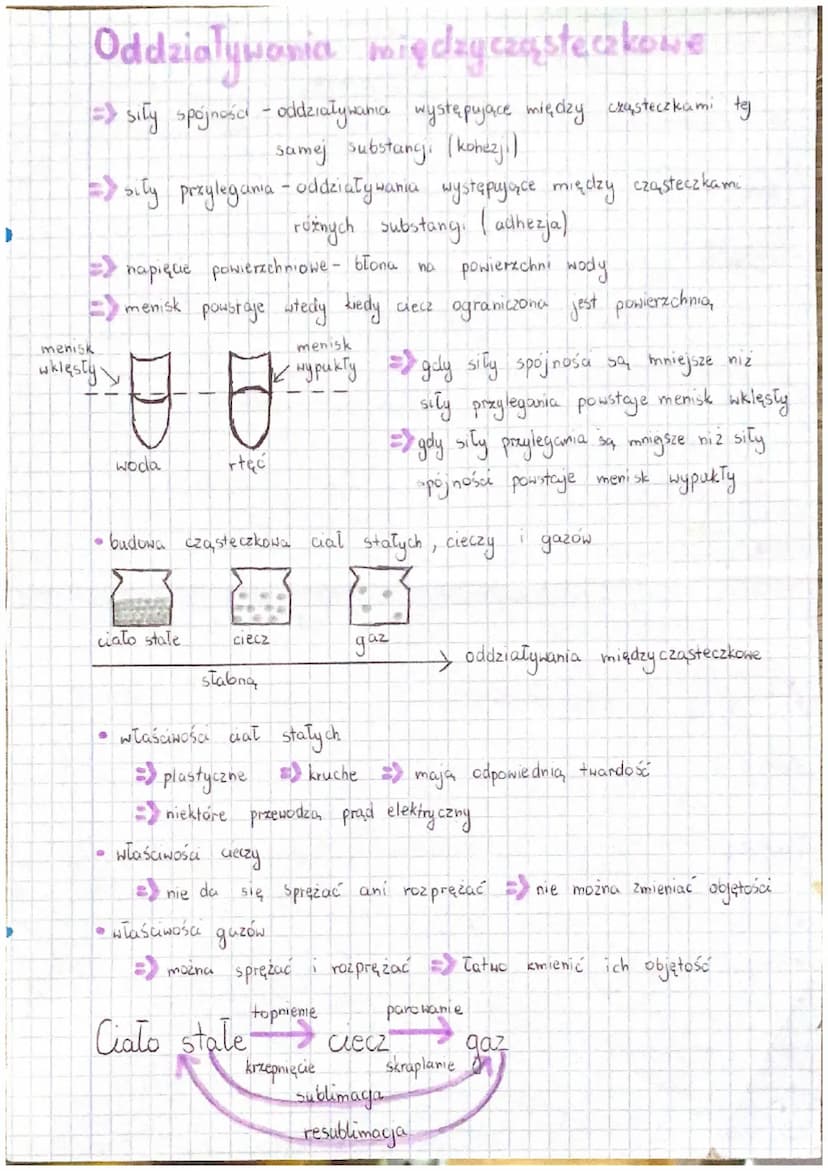 Oddziaływania międzycząsteczkowe
=> siły spójności - oddziaływania występujące między cząsteczkami tej
samej substancji (kohezji)
=> siły przylegania - oddziaływania występujące między cząsteczkami
różnych substancji (adhezja)
=> napięcie powierzchniowe - błona na powierzchni wody
=> menisk powstaje wtedy kiedy ciecz ograniczona jest powierzchnią
menisk
wklęsły
menisk
wypukły
woda
rtęć
=> gdy siły spójności są mniejsze niż
siły przylegania powstaje menisk wklęsły
=> gdy siły przylegania są mniejsze niż siły
spójności powstaje menisk wypukły
• budowa cząsteczkowa ciał stałych, cieczy i gazów
ciało stałe
ciecz
gaz
oddziaływania międzycząsteczkowe
słabną
• właściwości ciał stałych
=> plastyczne => kruche => mają odpowiednią twardość
=> niektóre przewodzą prąd elektryczny
• właściwości cieczy
=> nie da się sprężać ani rozprężać => nie można zmieniać objętości
• właściwości gazów
=> można sprężać i rozprężać => łatwo zmienić ich objętość
topnienie parowanie
Ciało stałe ciecz gaz
krzepnięcie skraplanie
sublimacja
resublimacja